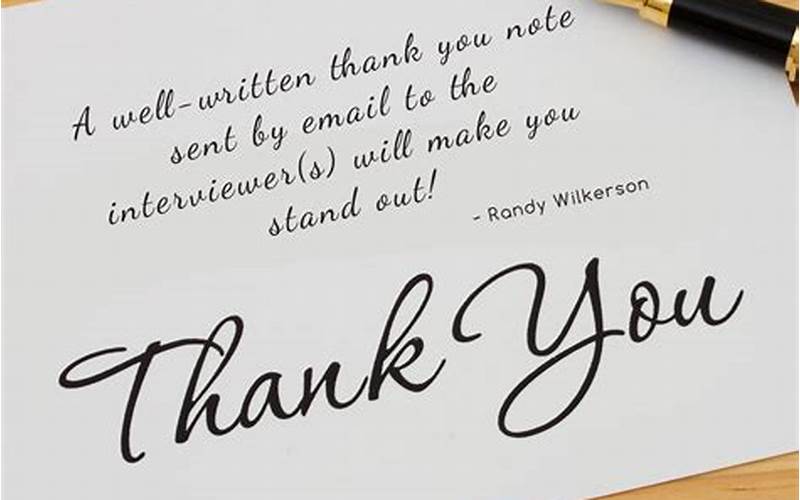 A well-written thank you note
sent by email to the
interviewer(s) will make you
stand out!
- Randy Wilkerson
Thank You